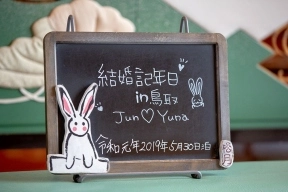 結婚記年日
in鳥取
Jun♡Yuna
令和元年2019年5月30日